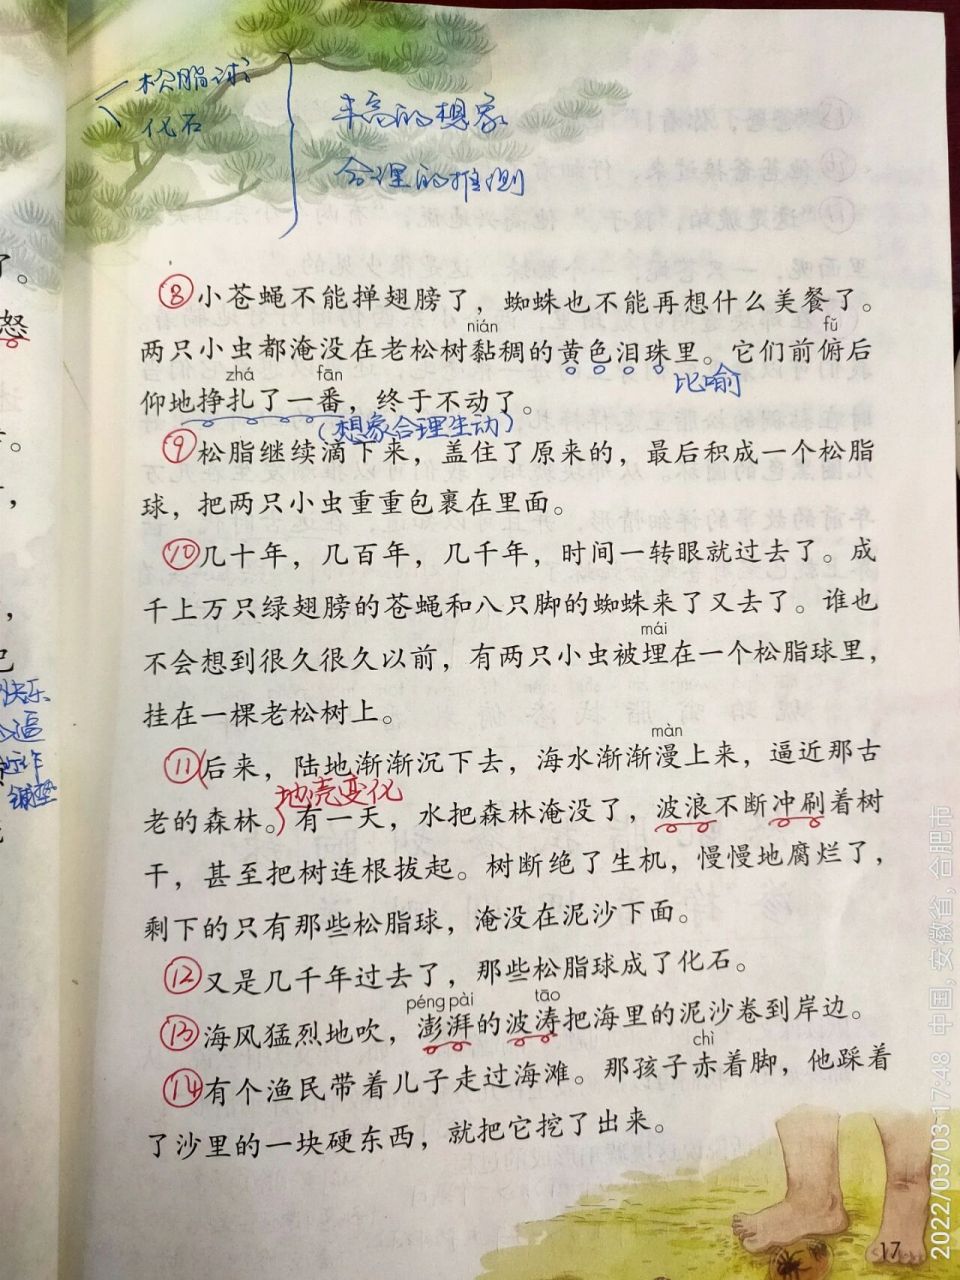 松脂球
化石
丰富的想象
合理的推测
⑧小苍蝇不能掸翅膀了，蜘蛛也不能再想什么美餐了。
nián fǔ
两只小虫都淹没在老松树黏稠的黄色泪珠里。它们前俯后
zhá fān 比喻
仰地挣扎了一番，终于不动了。
（想象合理生动）
⑨松脂继续滴下来，盖住了原来的，最后积成一个松脂
球，把两只小虫重重包裹在里面。
⑩几十年，几百年，几千年，时间一转眼就过去了。成
千上万只绿翅膀的苍蝇和八只脚的蜘蛛来了又去了。谁也
mái
不会想到很久很久以前，有两只小虫被埋在一个松脂球里，
挂在一棵老松树上。
màn
⑪后来，陆地渐渐沉下去，海水渐渐漫上来，逼近那古
地壳变化
老的森林。有一天，水把森林淹没了，波浪不断冲刷着树
干，甚至把树连根拔起。树断绝了生机，慢慢地腐烂了，
剩下的只有那些松脂球，淹没在泥沙下面。
⑫又是几千年过去了，那些松脂球成了化石。
péng pài tāo
⑬海风猛烈地吹，澎湃的波涛把海里的泥沙卷到岸边。
chì
⑭有个渔民带着儿子走过海滩。那孩子赤着脚，他踩着
了沙里的一块硬东西，就把它挖了出来。
17
了。
怒
快乐
铺垫
2022/03/03 17:48 中国, 安徽省, 合肥市